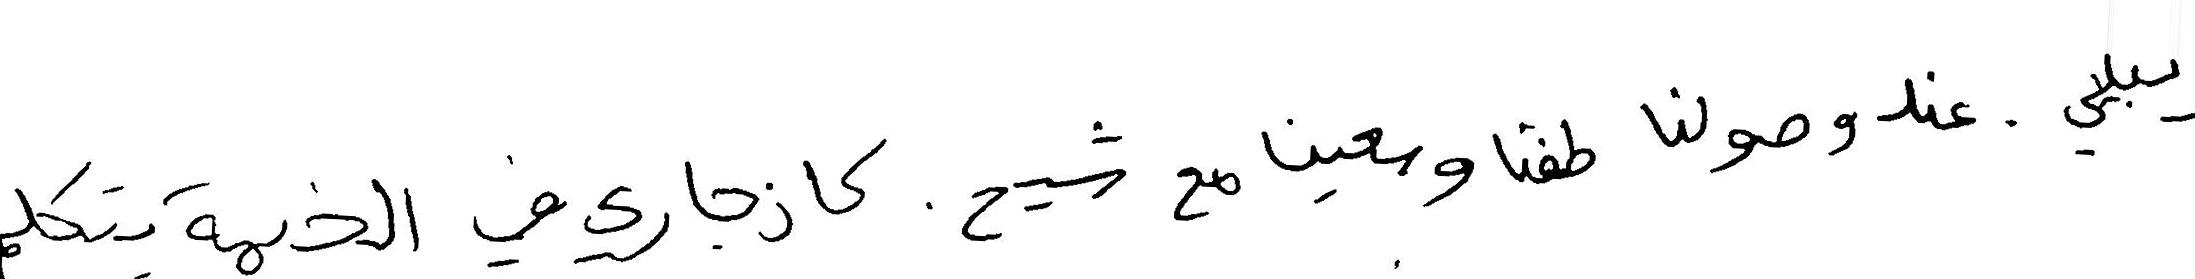 سبيلي. عند وصولنا طفنا وسعينا مع شيح. كان جاري في الخيمة يتكلم